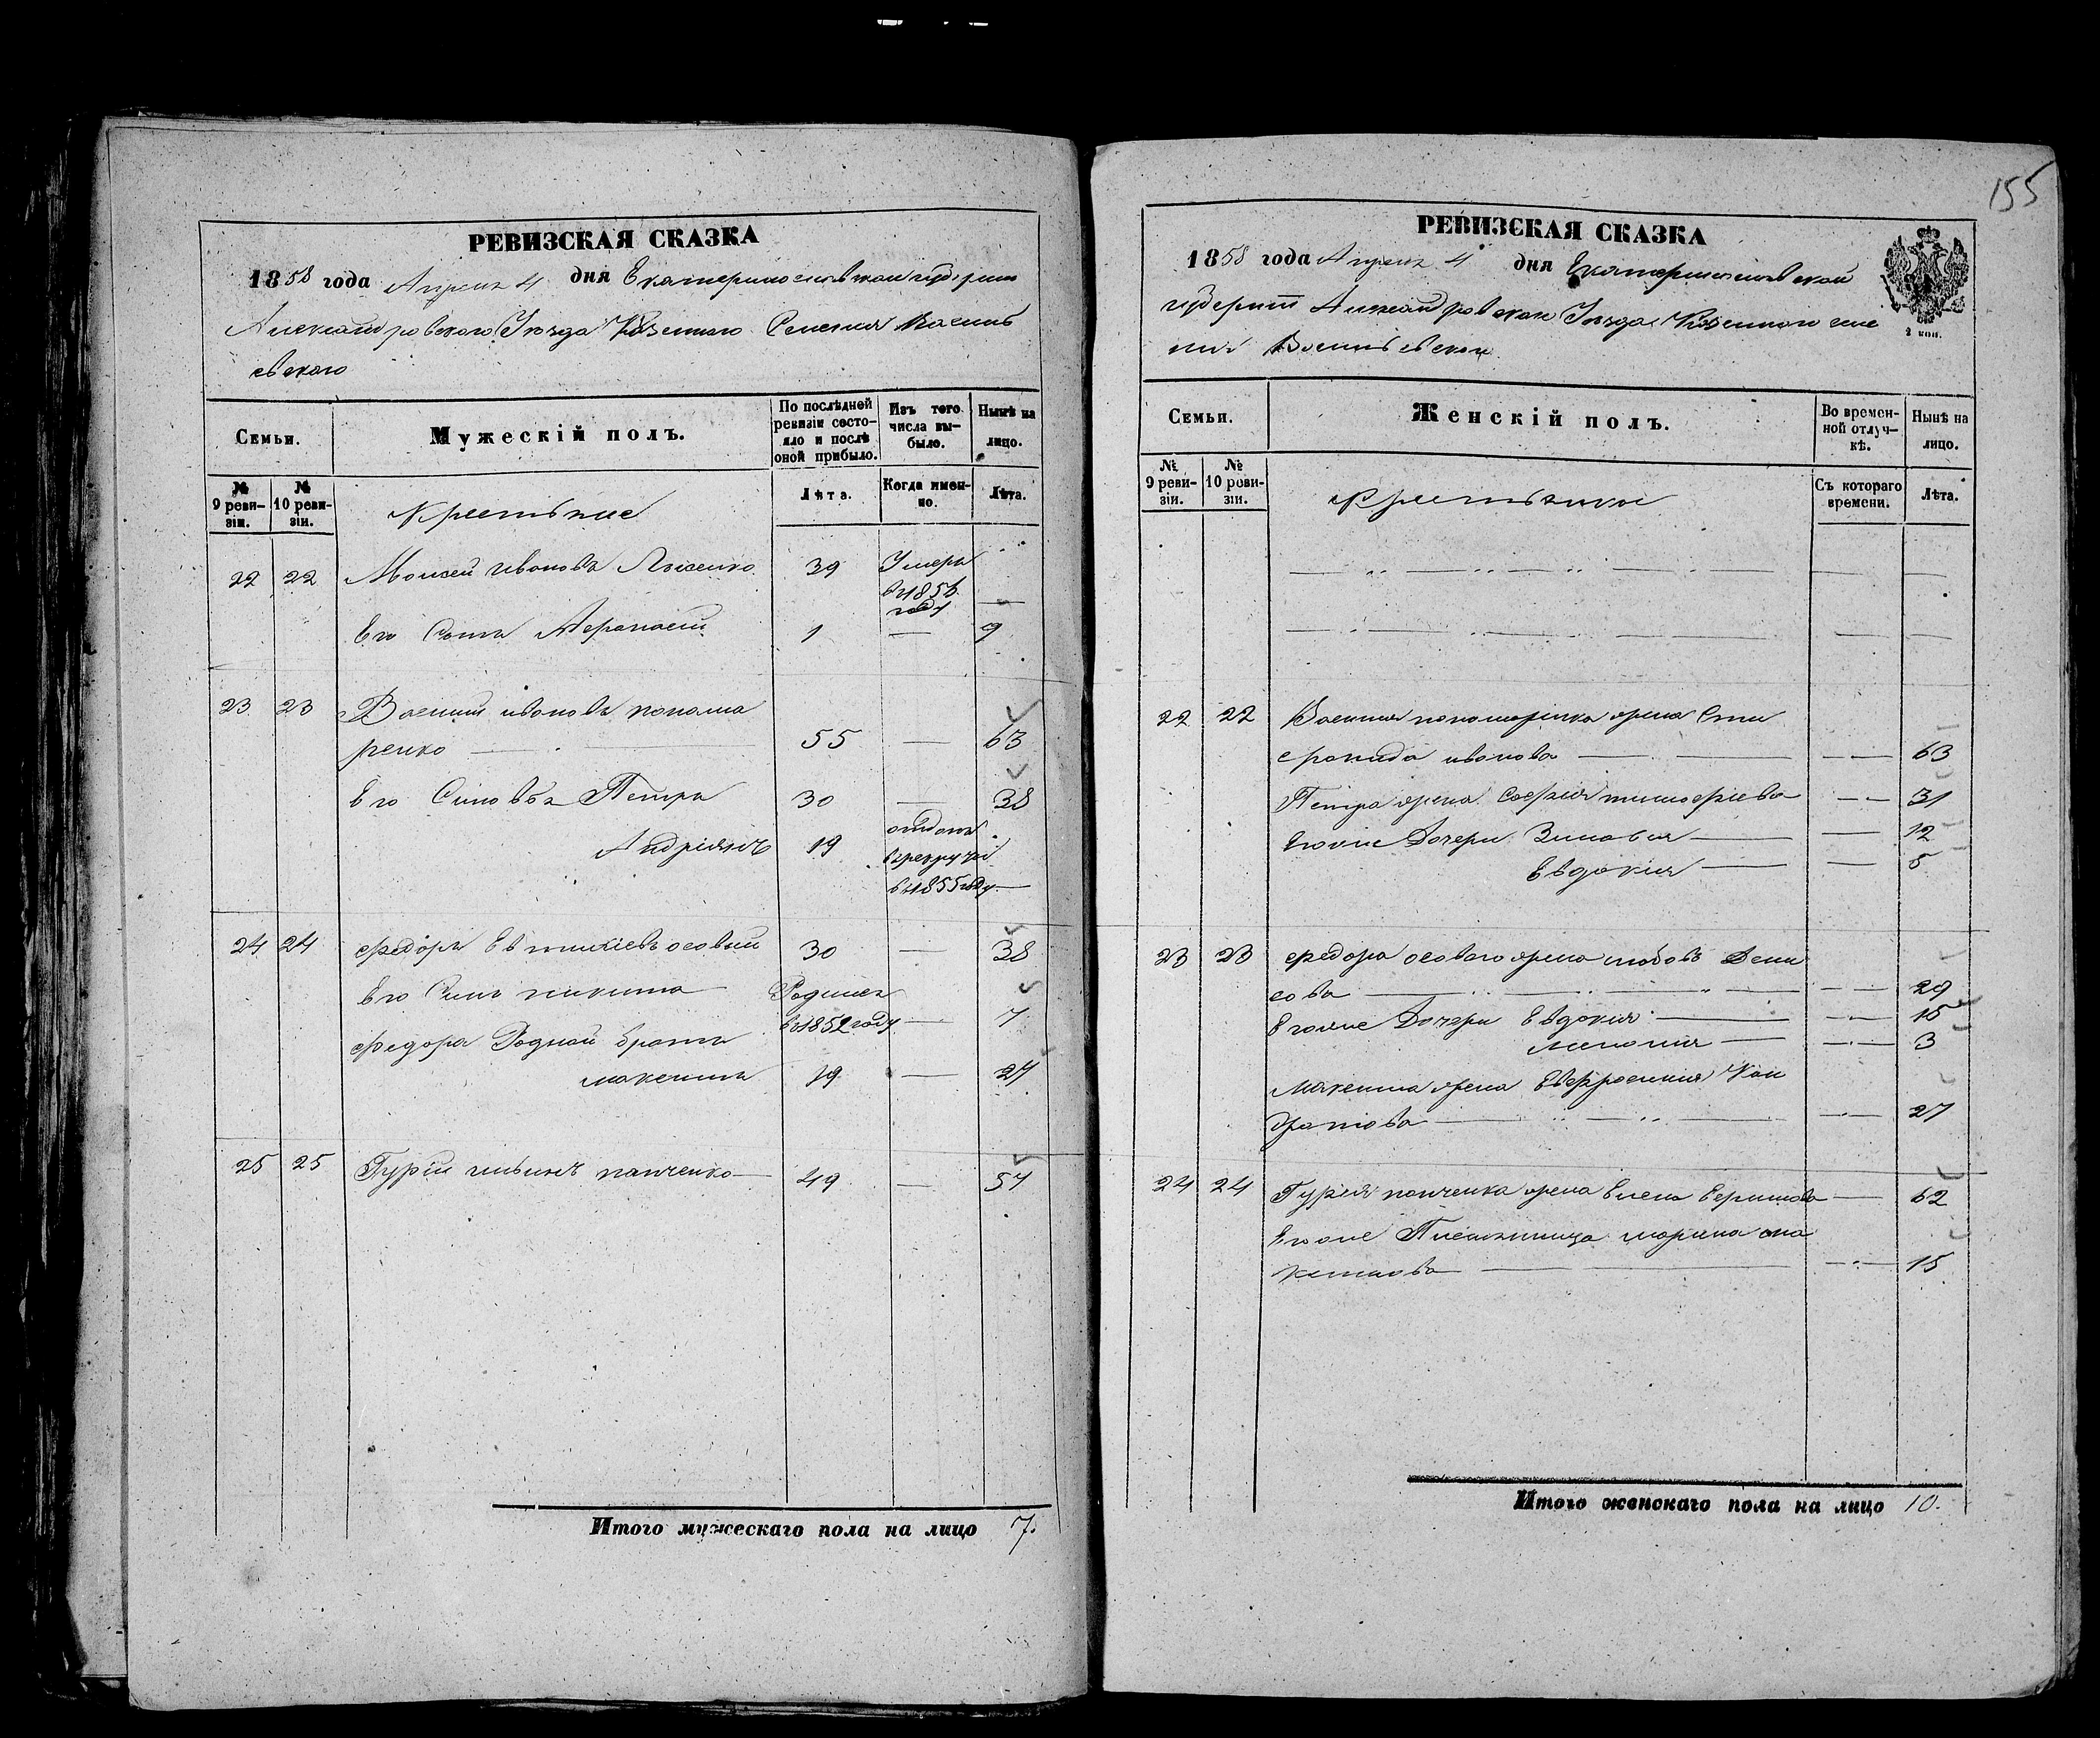 155
РЕВИЗСКАЯ СКАЗКА
1858 года Апреля 4 дня Екатеринославской губернии
Александровского Уезда Казенного Селения Василь
евского
Семьи.
Мужескій полъ.
По послѣдней ревизіи состояло и послѣ оной прибыло.
Изъ того числа выбыло.
Нынѣ на лицо.
№ 9 ревизіи.
№ 10 ревизіи.
Лѣта.
Когда именно.
Лѣта.
22 22 Моисей ивановъ 39 Умеръ
в 1856
году —
Его Сынъ Афанасий 1 — 9
23 23 Василий ивановъ понама
ренко — 55 — 63
Его Синовья Петръ 30 — 38
Андріянъ 19 отданъ
в рекруты
в 1855 году —
24 24 федоръ Евтихіевъ осовий 30 — 38
Его Синъ никита Родился
в 1852 году — 7
федора Родной братъ
максимъ 19 — 27
25 25 Гурій ильинъ панченко — 49 — 57
Итого мужескаго пола на лицо 7.
РЕВИЗСКАЯ СКАЗКА
1858 года Апреля 4 дня Екатеринославской
губернии Александровского Уезда Казенного селе
ния Васильевского
2 коп.
Семьи.
Женскій полъ.
Во временной отлучкѣ.
Нынѣ на лицо.
№ 9 ревизіи.
№ 10 ревизіи.
Съ котораго времени.
Лѣта.
22 22 Василия пономаренка жена Степ
анида иванова — — 63
Петра жена Софія тимофіева — 31
Егоже Дочери Зиновия — — 12
Евдокия — — 5
23 23 федора осового жена любовъ Дени
сова — — 29
Егоже Дочери Евдокия — — 15
мелания — — 3
Максима жена Евфросиния Кон
дратова — — 27
24 24 Гурія панченка жена Елена — 62
Егоже Племянница марина ма
ксимова — — 15
Итого женскаго пола на лицо 10.